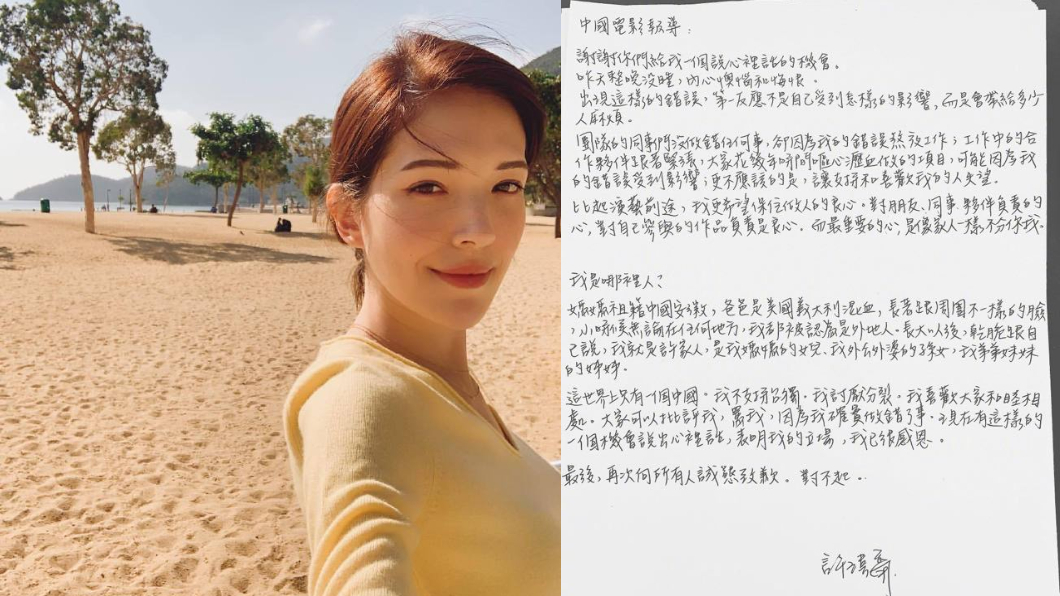 中國電影報導：
謝謝你們給我一個說心裡話的機會。
昨天整晚沒睡，內心懊惱和悔恨。
出現這樣的錯誤，第一反應不是自己受到怎樣的影響，而是會帶給多少
人麻煩。
團隊的同事們沒做錯任何事，卻因為我的錯誤熬夜工作；工作中的合
作夥伴跟著緊張，大家花幾年時間嘔心瀝血做的項目，可能因為我
的錯誤受到影響；更不應該的是，讓支持和喜歡我的人失望。
比起演藝前途，我更希望保住做人的良心。對朋友、同事、夥伴負責的
心，對自己參與的作品負責是良心。而最重要的心，是像家人一樣不分你我。
我是哪裡人？
媽媽祖籍中國安徽，爸爸是美國義大利混血，長著跟周圍不一樣的臉
，小時候無論在任何地方，我都被認為是外地人。長大以後，乾脆跟自
己說，我就是許家人，是我媽媽的女兒、我外公外婆的孫女，我弟弟妹妹
的姊姊。
這世界上只有一個中國。我不支持台獨。我討厭分裂。我喜歡大家和睦相
處。大家可以批評我，罵我，因為我確實做錯了事。現在有這樣的
一個機會說出心裡話，表明我的立場，我已很感恩。
最後，再次向所有人誠懇致歉。對不起。
許瑋甯